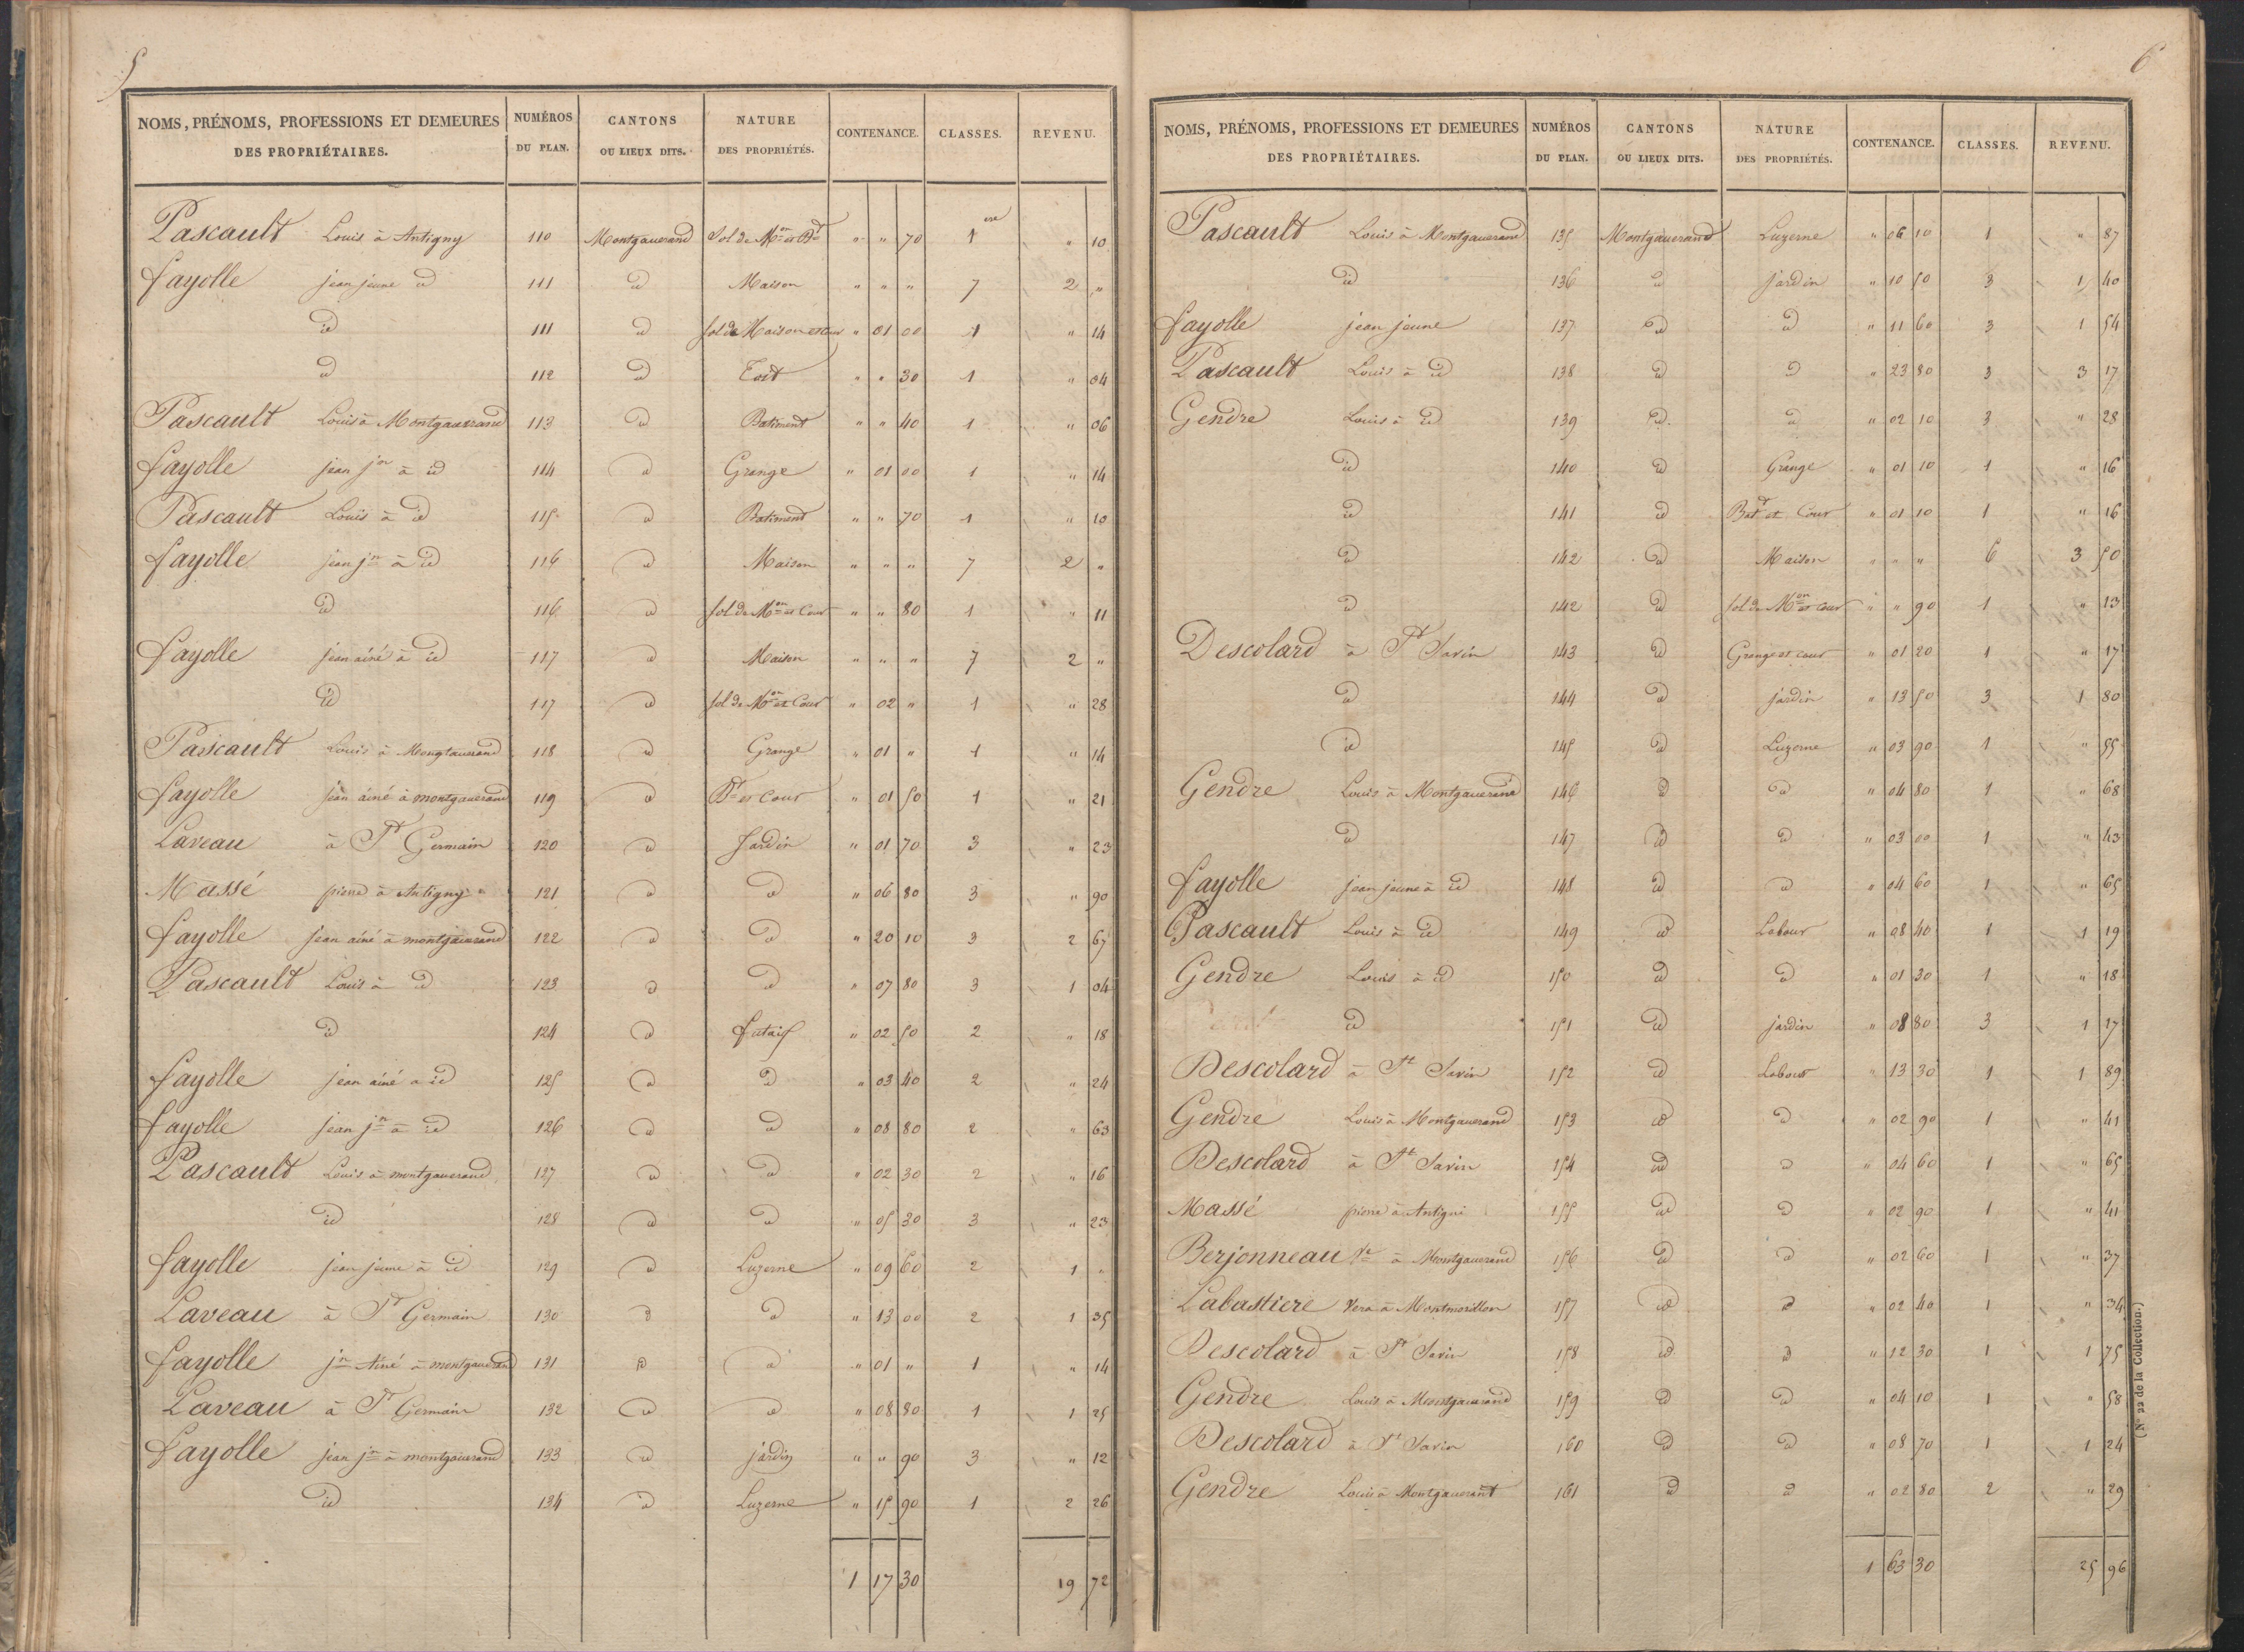 5
NOMS, PRÉNOMS, PROFESSIONS ET DEMEURES DES PROPRIÉTAIRES. NUMÉROS DU PLAN. CANTONS OU LIEUX DITS. NATURE DES PROPRIÉTÉS. CONTENANCE. CLASSES. REVENU.
Pascault Louis à Antigny 110 Montgauerand Sol de Mon et Bt " " 70 1ere " 10
fayolle jean jeune id 111 id Maison " " " 7 2 "
id 111 id sol de Maison et cour " 01 00 1 " 14
id 112 id Toit " " 30 1 " 04
Pascault Louis à Montgauerand 113 id Batiment " " 40 1 " 06
fayolle jean jne à id 114 id Grange " 01 00 1 " 14
Pascault Louis à id 115 id Batiment " " 70 1 " 10
fayolle jean jne à id 116 id Maison " " " 7 2 "
id 116 id sol de Mon et Cour " " 80 1 " 11
fayolle jean ainé à id 117 id Maison " " " 7 2 "
id 117 id sol de Mon et Cour " 02 " 1 " 28
Pascault Louis à Mongtauerand 118 id Grange " 01 " 1 " 14
fayolle jean ainé à montgauerand 119 id Bt et Cour " 01 50 1 " 21
Laveau à St Germain 120 id Jardin " 01 70 3 " 23
Massé pierre à Antigny 121 id id " 06 80 3 " 90
fayolle jean ainé à montgauerand 122 id id " 20 10 3 2 67
Pascault Louis à id 123 id id " 07 80 3 1 04
id 124 id futaif " 02 50 2 " 18
fayolle jean ainé a id 125 id id " 03 40 2 " 24
fayolle jean jne à id 126 id id " 08 80 2 " 63
Pascault Louis à montgauerand 127 id id " 02 30 2 " 16
id 128 id id " 05 30 3 " 23
fayolle jean jeune à id 129 id Luzerne " 09 60 2 1 "
Laveau à St Germain 130 id id " 13 00 2 1 35
fayolle jn Ainé à montgauerand 131 id id " 01 " 1 " 14
Laveau à St Germain 132 id id " 08 80 1 1 25
fayolle jean jne à montgauerand 133 id jardin " " 90 3 " 12
id 134 id Luzerne " 15 90 1 2 26
1 17 30 19 72
6
NOMS, PRÉNOMS, PROFESSIONS ET DEMEURES DES PROPRIÉTAIRES. NUMÉROS DU PLAN. CANTONS OU LIEUX DITS. NATURE DES PROPRIÉTÉS. CONTENANCE. CLASSES. REVENU.
Pascault Louis à Montgauerand 135 Montgauerand Luzerne " 06 10 1 " 87
id 136 id jardin " 10 50 3 1 40
fayolle jean jeune 137 id id " 11 60 3 1 54
Pascault Louis à id 138 id id " 23 80 3 3 17
Gendre Louis à id 139 id id " 02 10 3 " 28
id 140 id Grange " 01 10 1 " 16
id 141 id Bat et Cour " 01 10 1 " 16
id 142 id Maison " " " 6 3 50
id 142 id sol de Mon et cour " " 90 1 " 13
Descolard à St Savin 143 id Grange et cour " 01 20 1 " 17
id 144 id jardin " 13 50 3 1 80
id 145 id Luzerne " 03 90 1 " 55
Gendre Louis à Montgauerand 146 id id " 04 80 1 " 68
id 147 id id " 03 00 1 " 43
fayolle jean jeune à id 148 id id " 04 60 1 " 65
Pascault Louis à id 149 id Labour " 08 40 1 1 19
Gendre Louis à id 150 id id " 01 30 1 " 18
id 151 id jardin " 08 80 3 1 17
Descolard à St Savin 152 id Labour " 13 30 1 1 89
Gendre Louis à Montgauerand 153 id id " 02 90 1 " 41
Descolard à St Savin 154 id id " 04 60 1 " 65
Massé pierre à Antigni 155 id id " 02 90 1 " 41
Berjonneau Ve à Montgauerand 156 id id " 02 60 1 " 37
Labastiere Vera à Montmorillon 157 id id " 02 40 1 " 34
Descolard à St Savin 158 id id " 12 30 1 1 75
Gendre Louis à Montgauerand 159 id id " 04 10 1 " 58
Descolard à St Savin 160 id id " 08 70 1 1 24
Gendre Louis à Montgauerant 161 id id " 02 80 2 " 29
1 63 30 25 96
(No 22 de la Collection.)